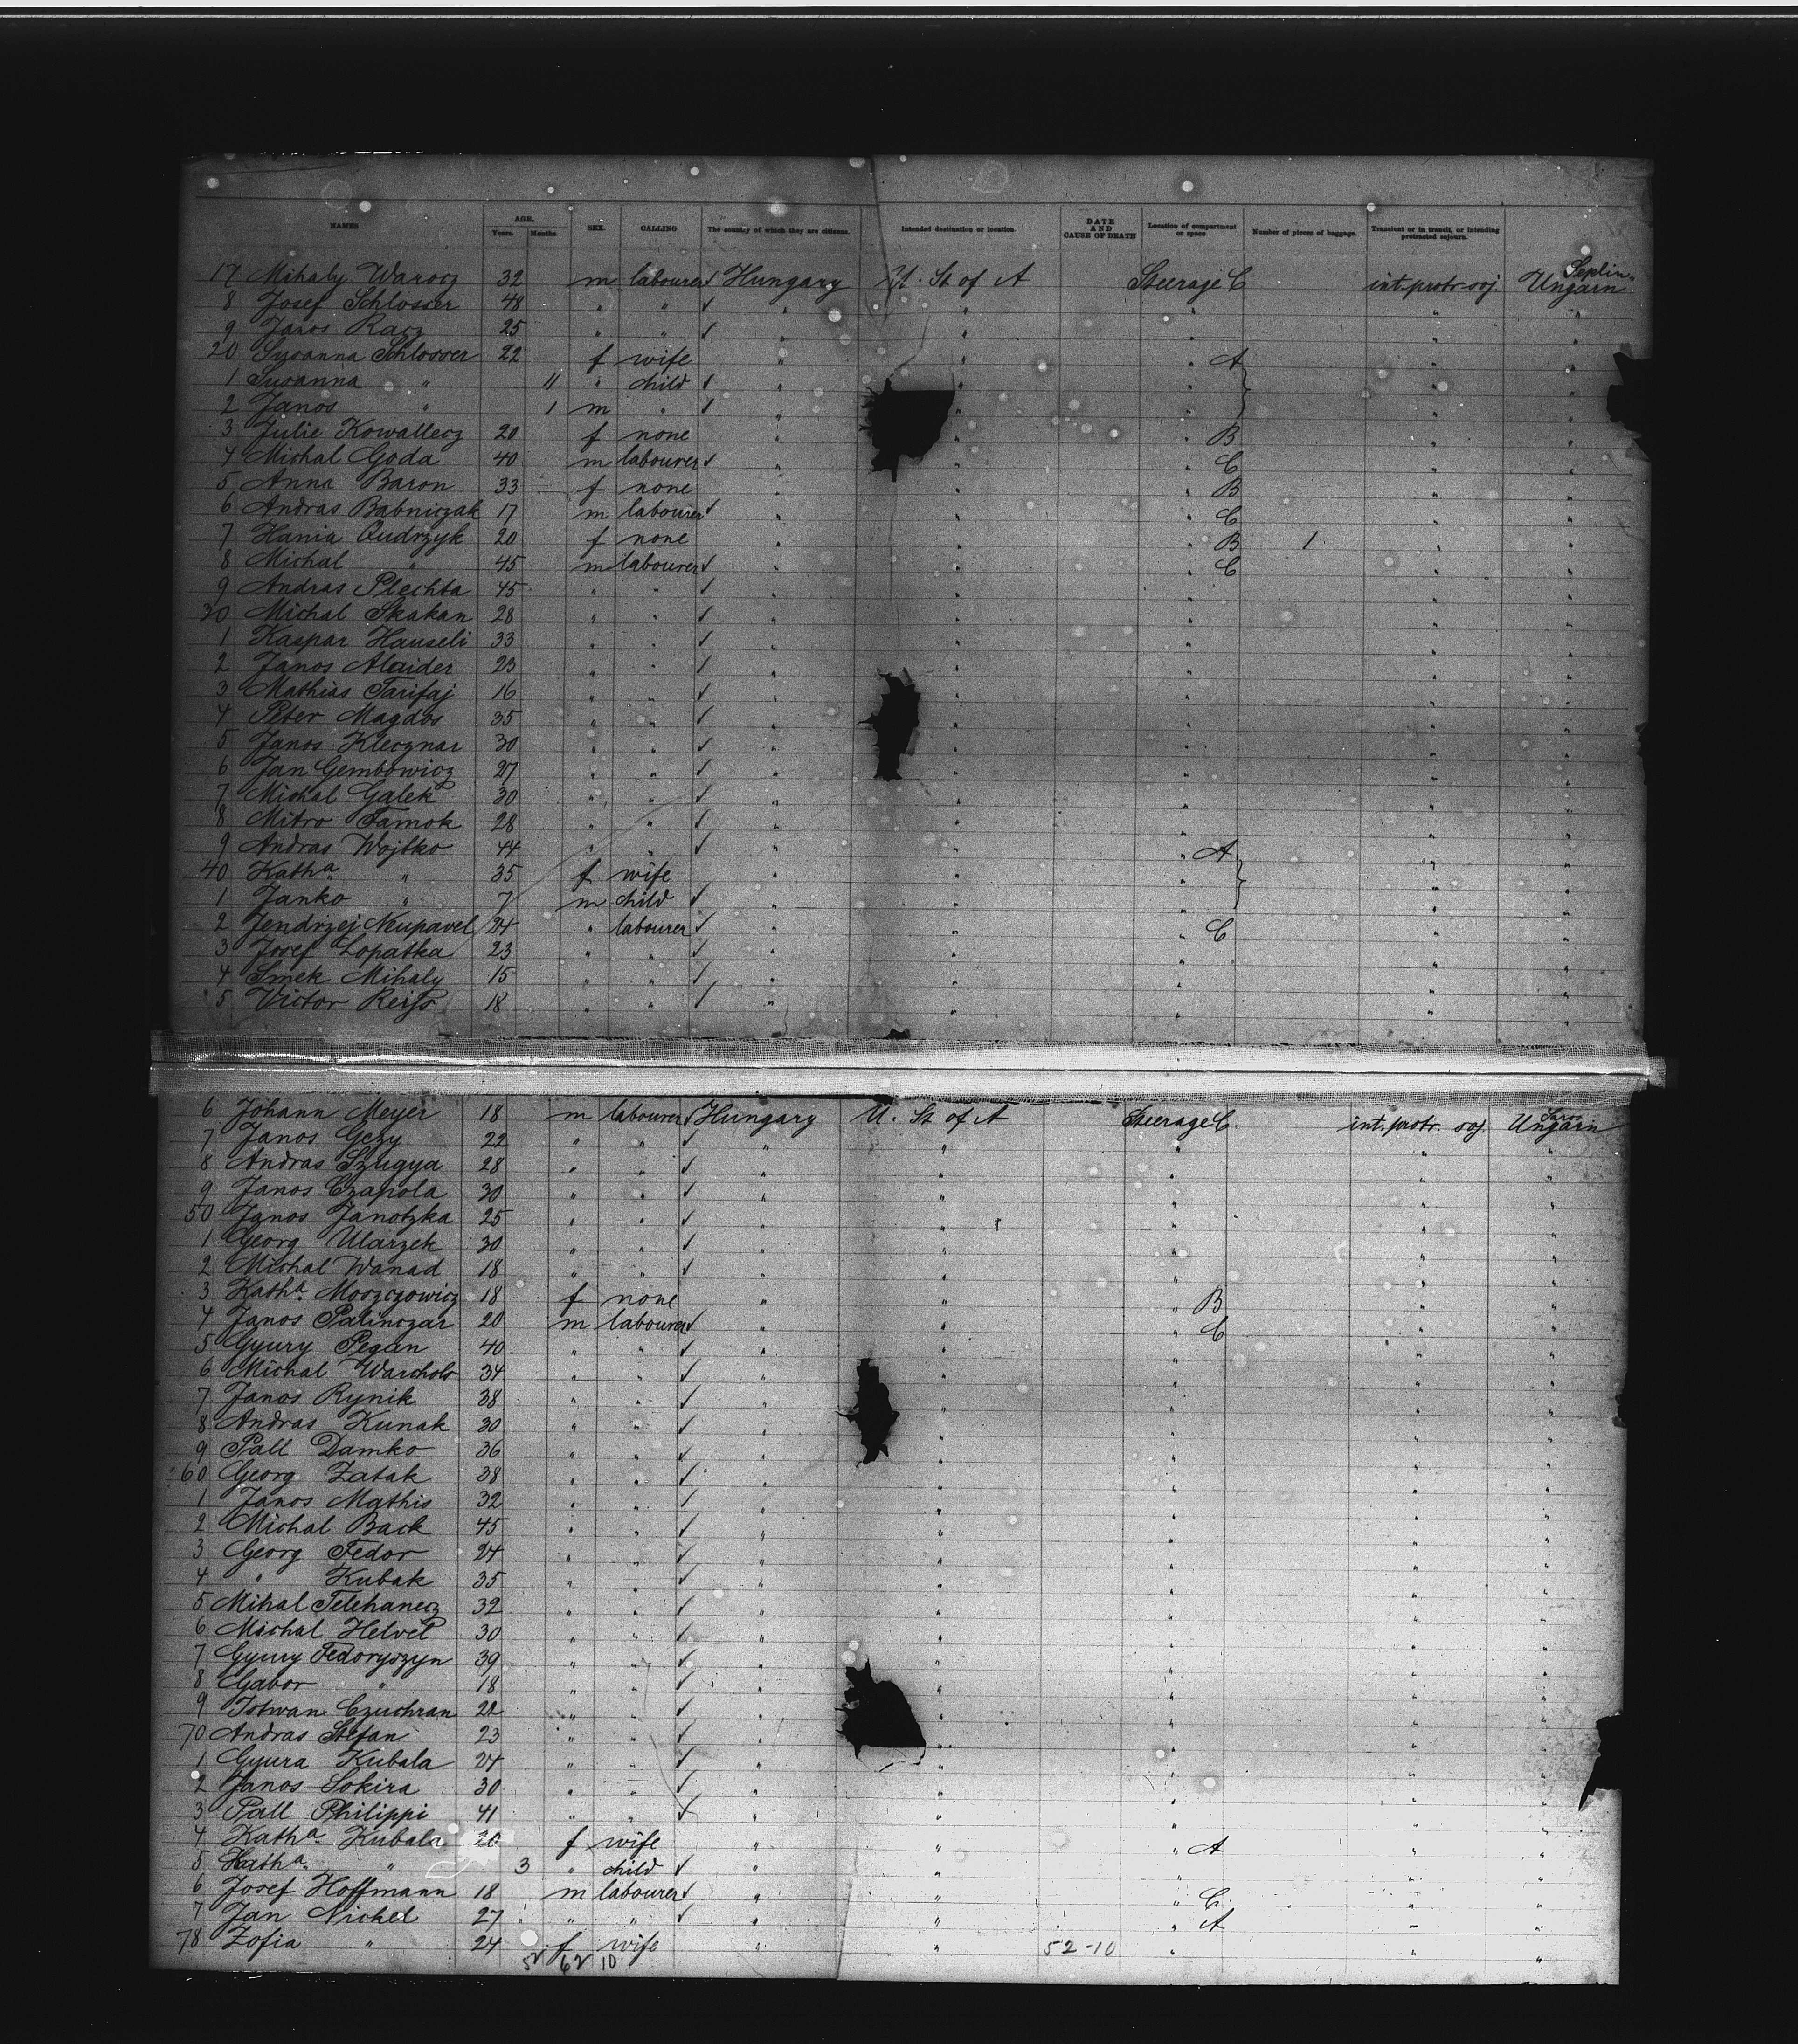 NAMES AGE. Years. Months. SEX. CALLING The country of which they are citizens. Intended destination or location. DATE AND CAUSE OF DEATH Location of compartment or space Number of pieces of baggage. Transient or in transit, or intending protracted sojourn.
17 Mihaly Warocz 32 m labourer Hungary U. St of A Steerage C int. protr. soj. Ungarn
8 Josef Schlosser 48 " "
9 Janos Racz 25
20 Susanna Schlosser 22 f wife " A
1 Susanna " 11 " child
2 Janos " 1 m "
3 Julie Kowallecz 20 f none " B
4 Michal Goda 40 m labourer " C
5 Anna Baron 33 f none " B
6 Andras Babniczak 17 m labourer " C
7 Hania Qudrzyk 20 f none " B 1
8 Michal " 45 m labourer " C
9 Andras Plechta 45 " "
30 Michal Skakan 28 " "
1 Kaspar Hauseli 33 " "
2 Janos Alaider 23 " "
3 Mathias Tarifaj 16 " "
4 Peter Magdos 35 " "
5 Janos Klecznar 30 " "
6 Jan Gembowicz 27 " "
7 Michal Galek 30 " "
8 Mitro Tamok 28 " "
9 Andras Wojtko 44 " " A
40 Katha " 35 f wife
1 Janko " 7 m child
2 Jendrzej Neupavel 24 " labourer " C
3 Josef Lopatka 23 " "
4 Smek Mihaly 15 " "
5 Victor Reiss 18 " "
6 Johann Meyer 18 m labourer Hungary U. St of A Steerage C int. protr. soj. Saros Ungarn
7 Janos Gezy 22 " "
8 Andras Szugya 28 " "
9 Janos Czapola 30 " "
50 Janos Janotzka 25 " "
1 Georg Ularzek 30 " "
2 Michal Wanad 18 " "
3 Katha Moszczowicz 18 f none " B
4 Janos Palinczar 20 m labourer " C
5 Gyury Pegan 40 " "
6 Michal Warchols 34 " "
7 Janos Rynik 38 " "
8 Andras Kunak 30 " "
9 Pall Damko 36 " "
60 Georg Zatak 38 " "
1 Janos Mathis 32 " "
2 Michal Back 45 " "
3 Georg Fedor 24 " "
4 " Kubak 35 " "
5 Mihal Telehanecz 32 " "
6 Michal Helvet 30 " "
7 Gyury Fedoryszyn 39 " "
8 Gabor " 18 " "
9 Istwan Czuchran 22 " "
70 Andras Stefan 23 " "
1 Gyura Kubala 24 " "
2 Janos Sokira 30 " "
3 Pall Philippi 41 " "
4 Katha Kubala 20 f wife " A
5 Katha " 3 " child
6 Josef Hoffmann 18 m labourer " C
7 Jan Nickel 27 " " " A
78 Zofia " 24 f wife 52-10
52 62 10